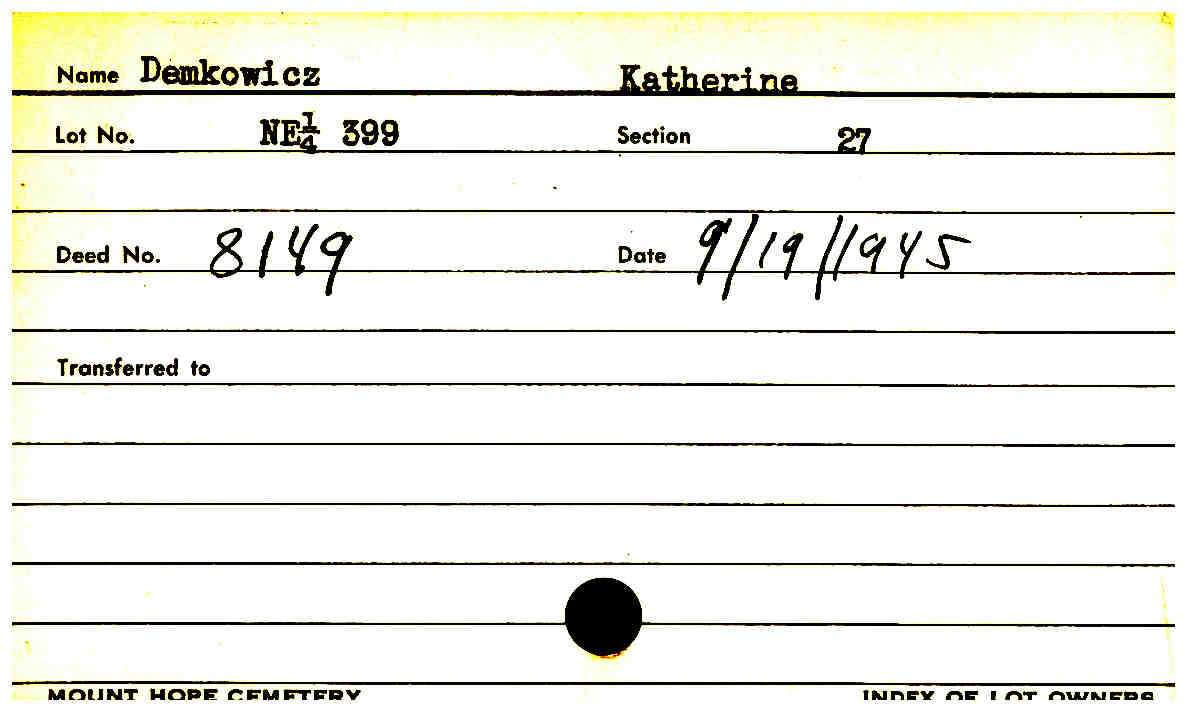 Name Demkowicz Katherine
Lot No. NE¼ 399 Section 27
Deed No. 8149 Date 9/19/1945
Transferred to
MOUNT HOPE CEMETERY INDEX OF LOT OWNERS